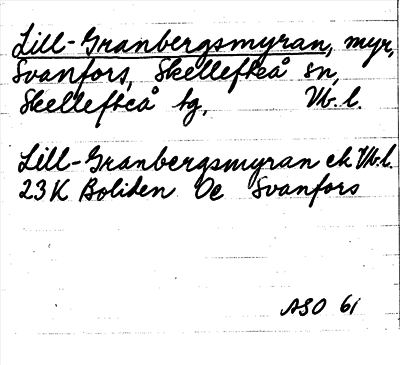 Lill-Granbergsmyran, myr,
Svanfors, Skellefteå sn,
Skellefteå tg, Vb.l.
Lill-Granbergsmyran ek Vb.l.
23K Boliden 0c Svanfors
ASO 61